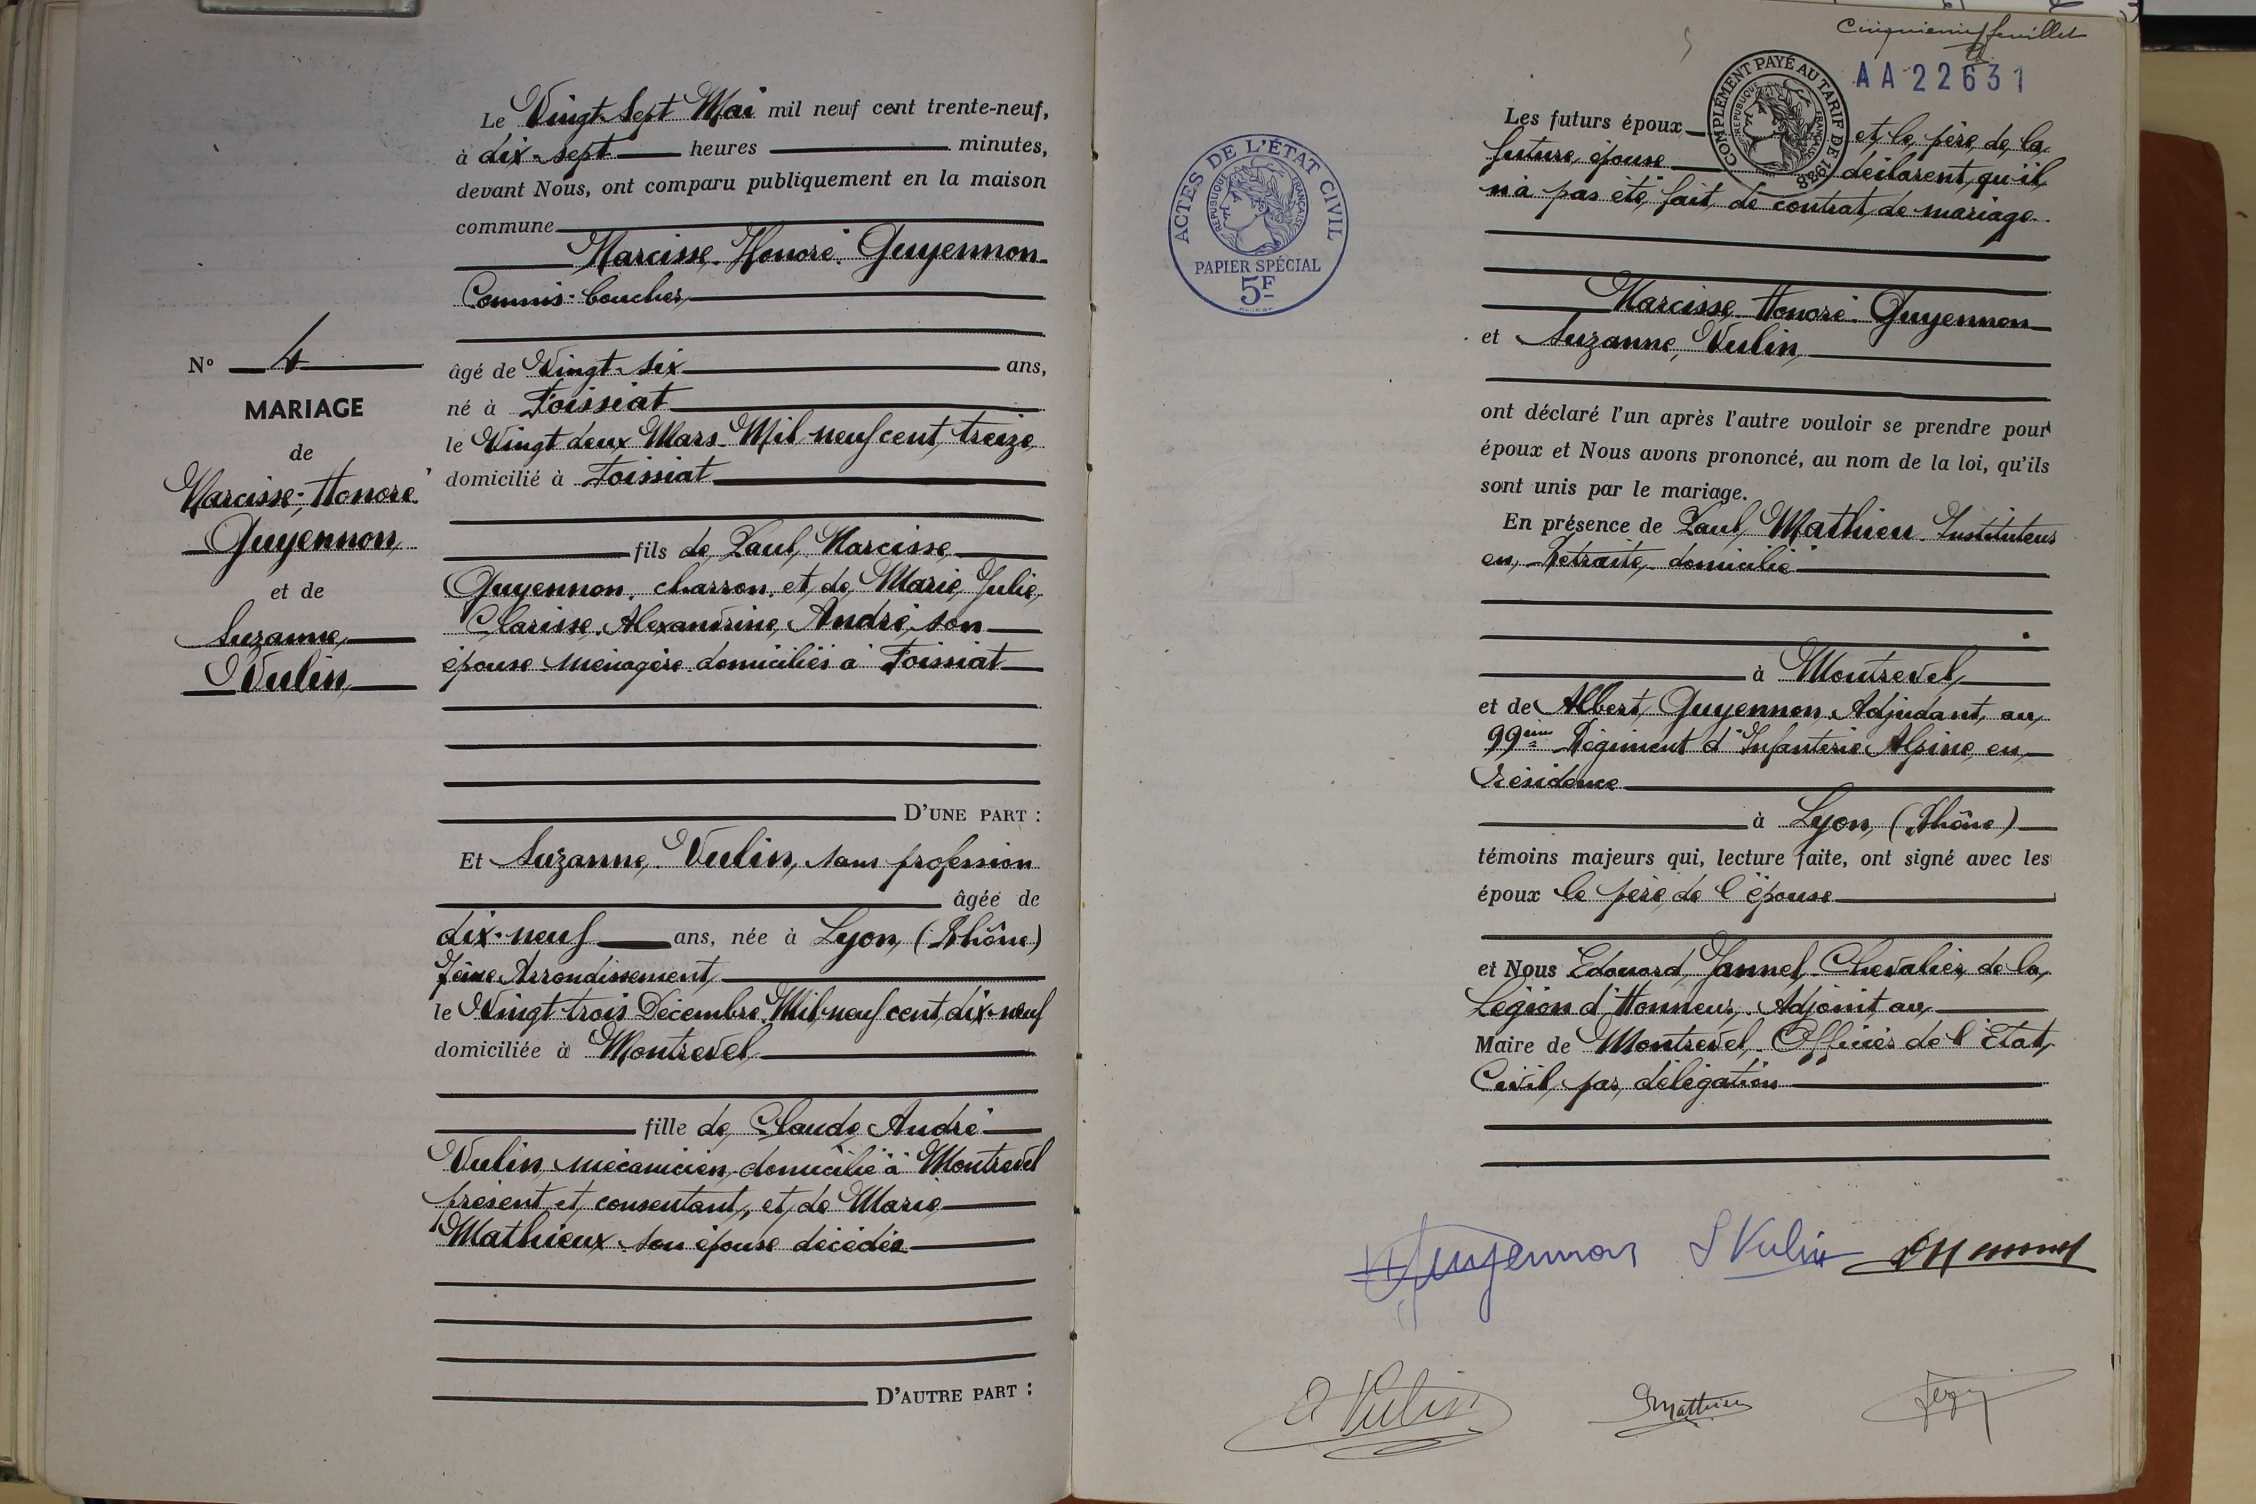 Le Vingt-Sept Mai mil neuf cent trente-neuf,
à dix-sept heures minutes,
devant Nous, ont comparu publiquement en la maison
commune
Narcisse Honoré Guyennon
Commis-boucher
âgé de Vingt-six ans,
né à Foissiat
le Vingt deux Mars Mil neuf cent treize
domicilié à Foissiat
fils de Paul, Narcisse
Guyennon, charron, et de Marie, Julie,
Clarisse, Alexandrine, André, son
épouse ménagère domiciliés à Foissiat
D'UNE PART :
Et Suzanne, Vulin, sans profession
âgée de
dix-neuf ans, née à Lyon, (Rhône)
7ème Arrondissement
le Vingt trois Décembre Mil neuf cent dix-neuf
domiciliée à Montrevel
fille de Claude André
Vulin mécanicien, domicilié à Montrevel
présent et consentant, et de Marie
Mathieux son épouse décédée
D'AUTRE PART :
N° 4
MARIAGE
de
Narcisse-Honoré
Guyennon
et de
Suzanne
Vulin
Cinquième feuillet
AA22631
COMPLÉMENT PAYÉ AU TARIF DE 1938
RÉPUBLIQUE FRANÇAISE
ACTES DE L'ÉTAT CIVIL
RÉPUBLIQUE FRANÇAISE
PAPIER SPÉCIAL
5F
Les futurs époux et le père de la
future épouse déclarent qu'il
n'a pas été fait de contrat de mariage.
Narcisse Honoré Guyennon
et Suzanne, Vulin,
ont déclaré l'un après l'autre vouloir se prendre pour
époux et Nous avons prononcé, au nom de la loi, qu'ils
sont unis par le mariage.
En présence de Paul, Mathieu Instituteur
en Retraite, domicilié
à Montrevel
et de Albert, Guyennon Adjudant au
99ème Régiment d'Infanterie Alpine en
résidence
à Lyon, (Rhône)
témoins majeurs qui, lecture faite, ont signé avec les
époux le père de l'épouse
et Nous Edouard, Jannel Chevalier de la
Légion d'Honneur, Adjoint au
Maire de Montrevel, Officier de l'Etat
Civil par délégation
Guyennon S Vulin
Vulin Mathieu